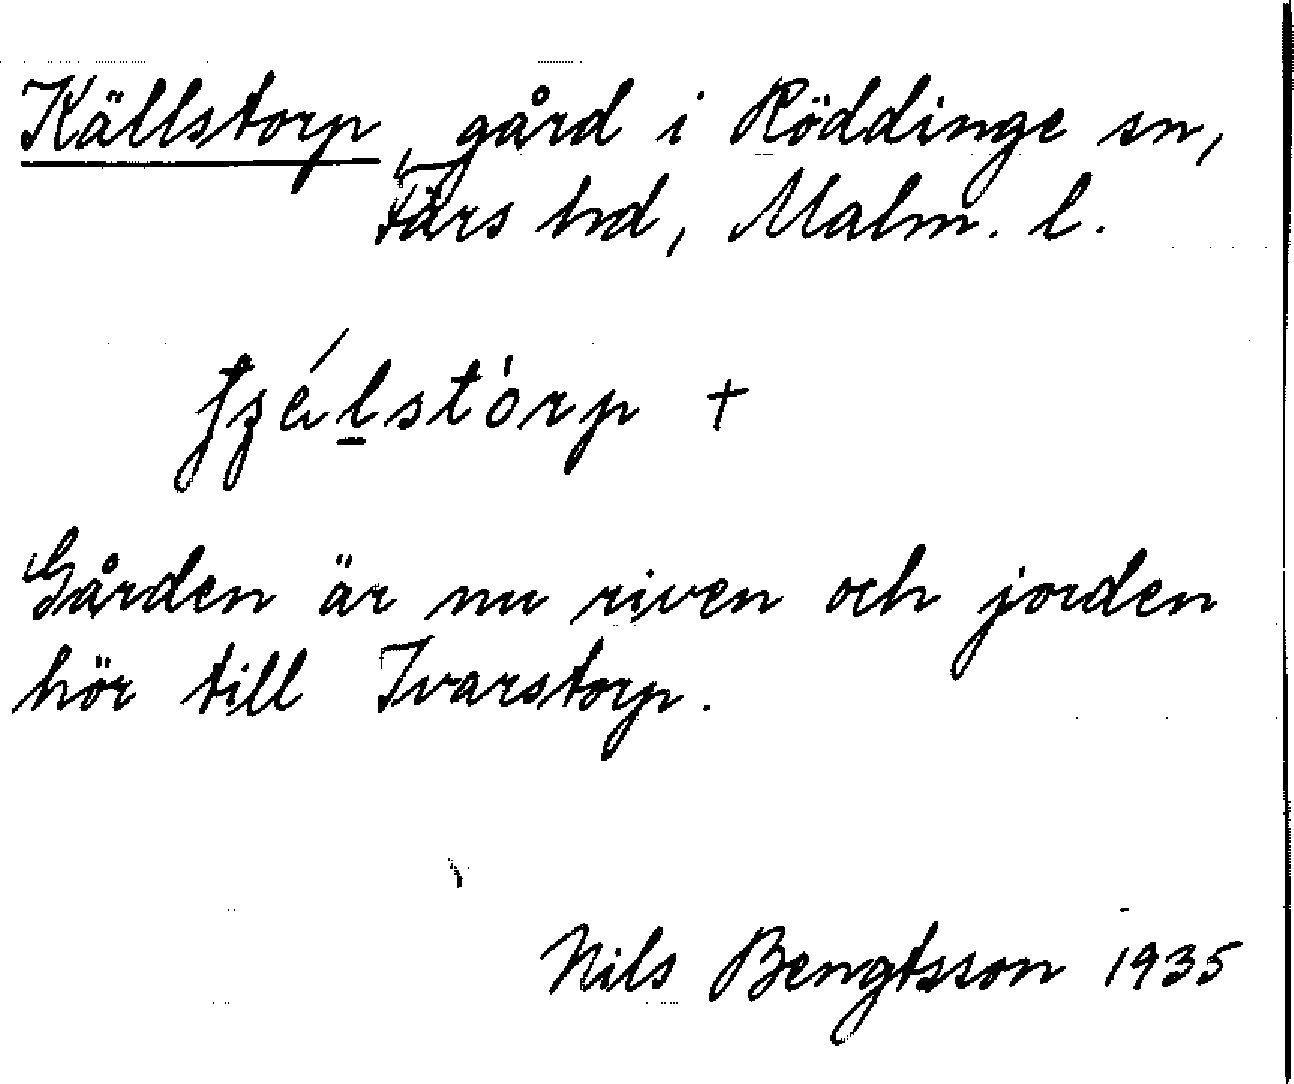 Källstorp, gård i Röddinge sn,
Färs hd, Malm. l.
Gården är nu riven och jorden
hör till Ivarstorp.
Nils Bengtsson 1935